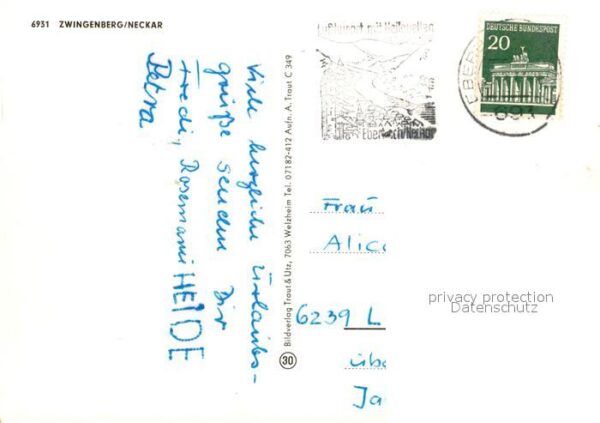 6931 ZWINGENBERG/NECKAR
Luftkurort mit Hallenbad
Eberbach/Neckar
DEUTSCHE BUNDESPOST
20
EBER
693
Viele herzliche Urlaubs-
grüße senden Dir
Fredi, Rosemarie HEIDE
Petra
Bildverlag Traut & Utz, 7063 Welzheim Tel. 07182-412 Aufn. A. Traut C 349
30
Frau
Alice
6239 L
übe
Ja
privacy protection
Datenschutz